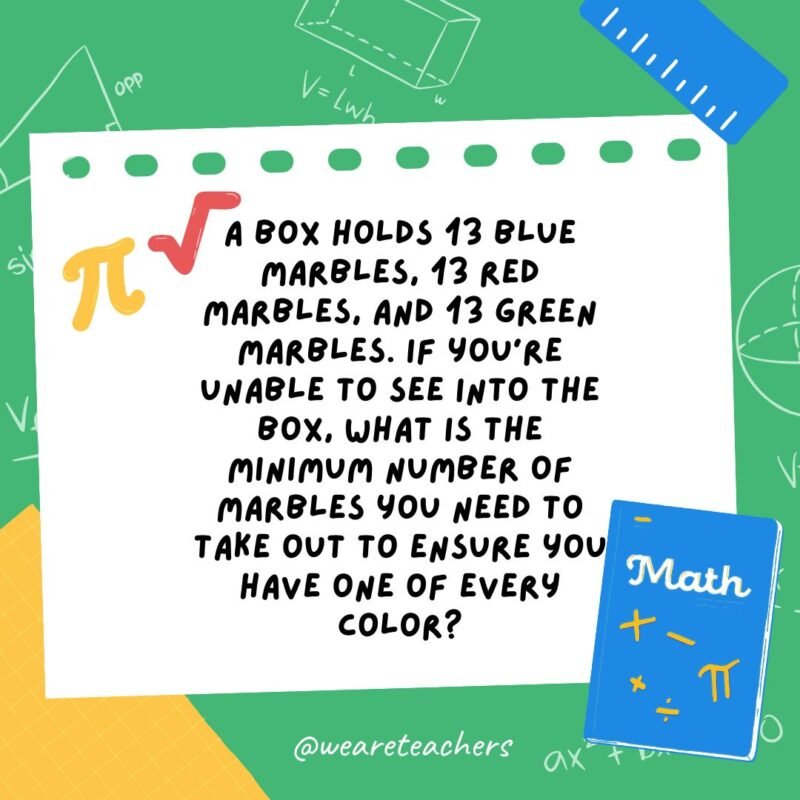 OPP
L
W
V = Lwh
A BOX HOLDS 13 BLUE
MARBLES, 13 RED
MARBLES, AND 13 GREEN
MARBLES. IF YOU'RE
UNABLE TO SEE INTO THE
BOX, WHAT IS THE
MINIMUM NUMBER OF
MARBLES YOU NEED TO
TAKE OUT TO ENSURE YOU
HAVE ONE OF EVERY
COLOR?
π √
Math
+ −
× ÷ π
@weareteachers